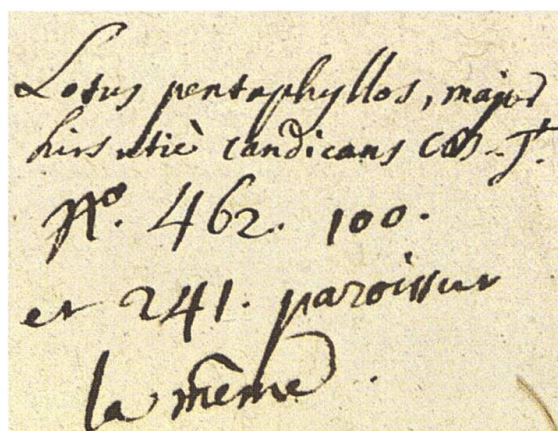 Lotus pentaphyllos, major
hirsutiè candicans CB-T.
No. 462. 100.
et 241. paroissent
la même.